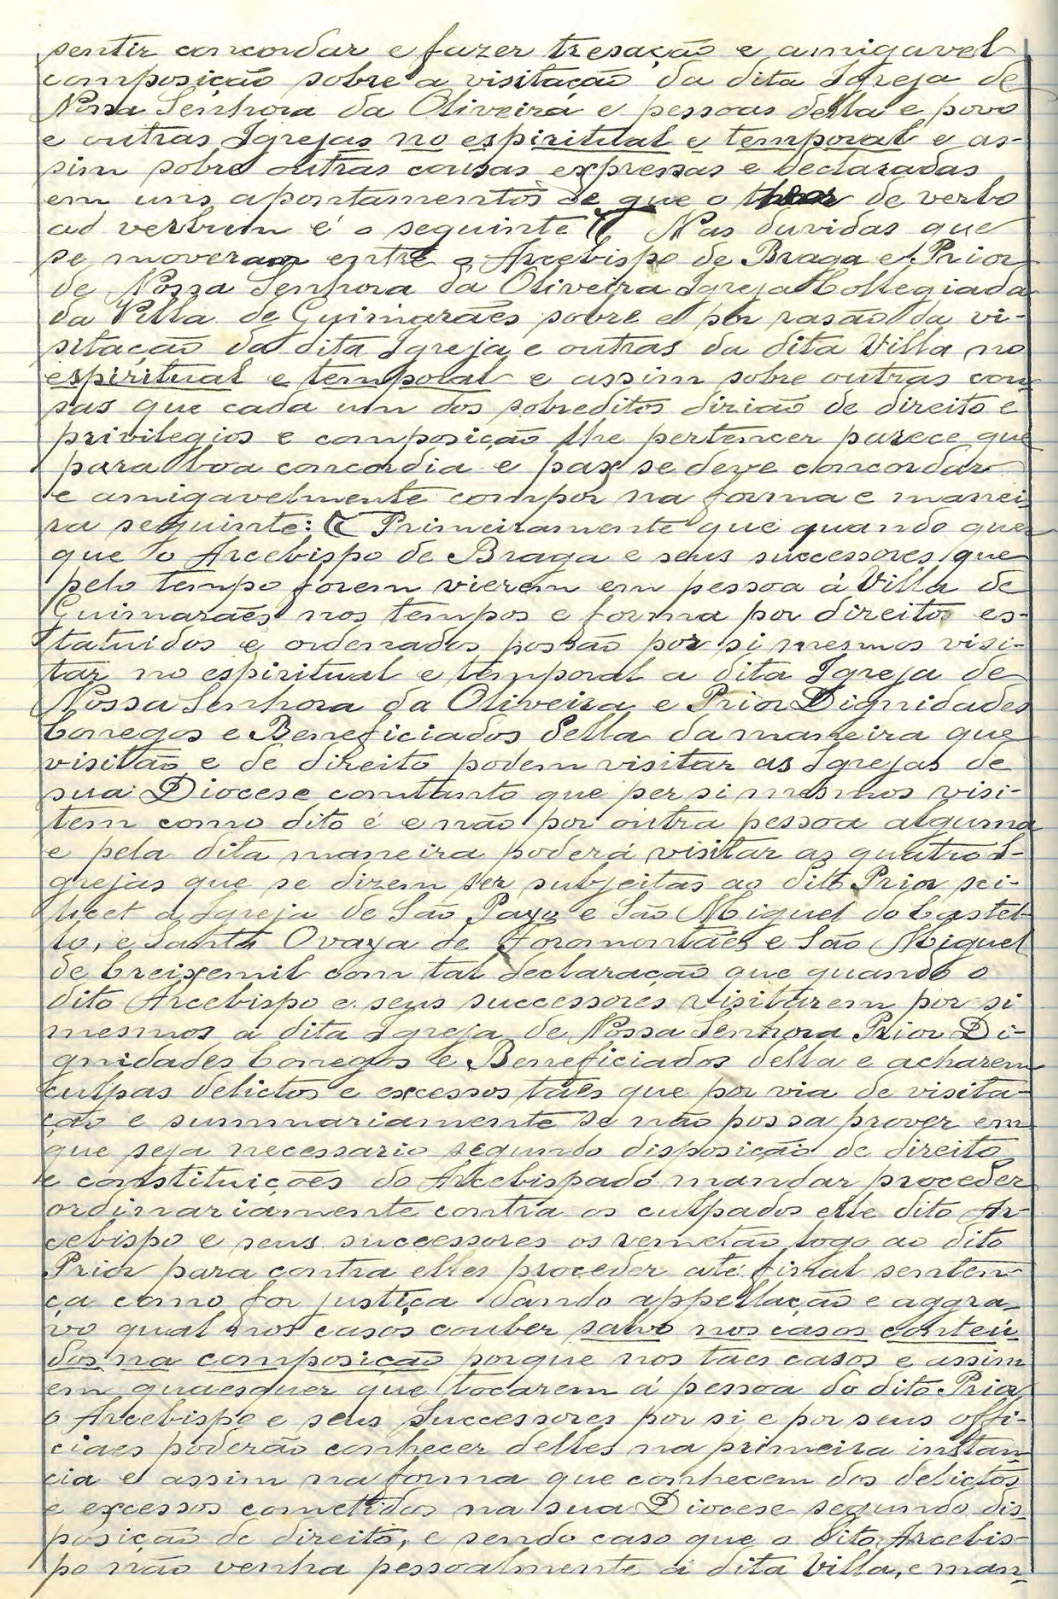 sentir concordar e fazer tresação e amigavel
composição sobre a visitação da dita Igreja de
Nossa Senhora da Oliveira e pessoas della e povo
e outras Igrejas no espiritual e temporal e as-
sim sobre outras cousas expressas e declaradas
em uns apontamentos de que o theor de verbo
ad verbum é o seguinte Nas duvidas que
se moveram entre o Arcebispo de Braga e Prior
de Nossa Senhora da Oliveira Igreja Collegiada
da Villa de Guimarães sobre e por rasão da vi-
sitação da dita Igreja e outras da dita Villa no
espiritual e temporal e assim sobre outras cou-
sas que cada um dos sobreditos dirião de direito e
privilegios e composição lhe pertencer parece que
para boa concordia e paz se deve concordar
e amigavelmente compor na forma e manei-
ra seguinte: Primeiramente que quando quer
que o Arcebispo de Braga e seus successores que
pelo tempo forem vierem em pessoa á Villa de
Guimarães nos tempos e forma por direito es-
tatuidos e ordenados possão por si mesmos visi-
tar no espiritual e temporal a dita Igreja de
Nossa Senhora da Oliveira e Prior Dignidades
Conegos e Beneficiados della da maneira que
visitão e de direito podem visitar as Igrejas de
sua Diocese comtanto que per si mesmos visi-
tem como dito é e não por outra pessoa alguma
e pela dita maneira poderá visitar as quatro I-
grejas que se dizem ser subjeitas ao dito Prior sci-
licet a Igreja de São Payo e São Miguel do Castel-
lo, e Santa Ovaya de Foromontães e São Miguel
de Creixemil com tal declaração que quando o
dito Arcebispo e seus successores visitarem por si
mesmos a dita Igreja de Nossa Senhora Prior Di-
gnidades Conegos e Beneficiados della e acharem
culpas delictos e excessos taes que por via de visita-
ção e summariamente se não possa prover em
que seja necessario segundo disposição de direito
e constituições do Arcebispado mandar proceder
ordinariamente contra os culpados elle dito Ar-
cebispo e seus successores os remetão logo ao dito
Prior para contra elles proceder até final senten-
ça como for justiça dando appellação e aggra-
vo qual nos casos couber salvo nos casos conteú-
dos na composição porque nos taes casos e assim
em quaesquer que tocarem á pessoa do dito Prior
o Arcebispo e seus Successores por si e por seus offi-
ciaes poderão conhecer delles na primeira instan-
cia e assim na forma que conhecem dos delictos
e excessos cometidos na sua Diocese segundo dis-
posição de direito, e sendo caso que o dito Arcebis-
po não venha pessoalmente á dita Villa, e man-